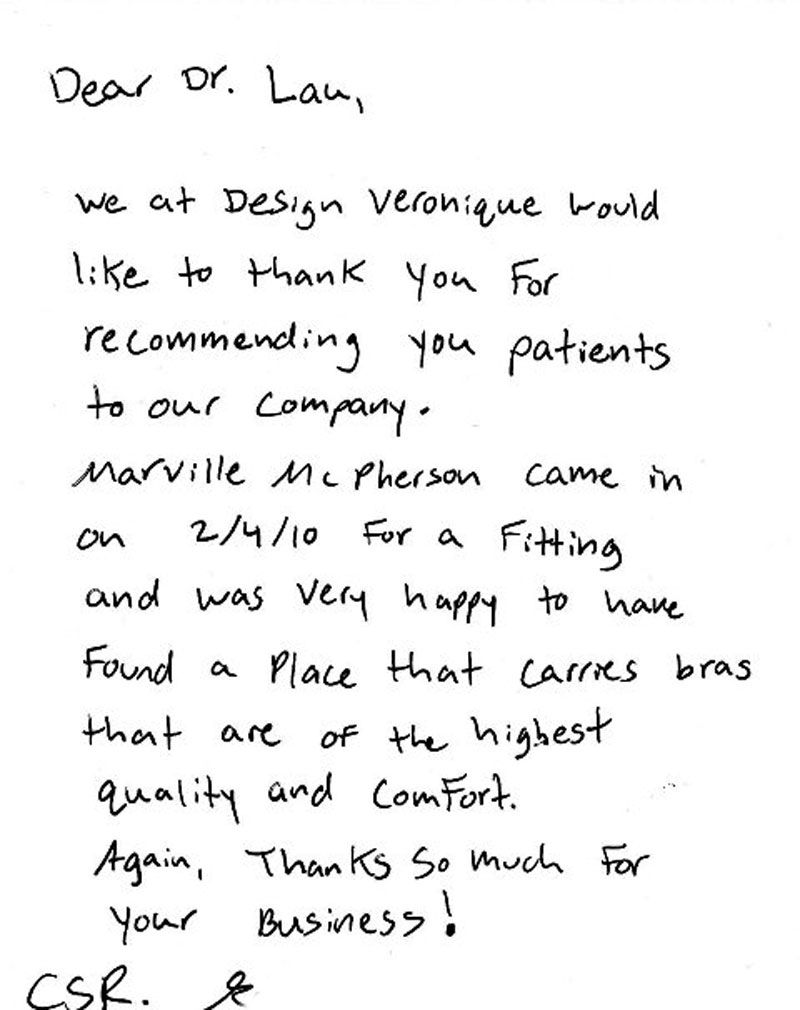 Dear Dr. Lau,
We at Design Veronique would
like to thank you For
recommending you patients
to our company.
Marville McPherson came in
on 2/4/10 For a Fitting
and was very happy to have
Found a Place that carries bras
that are of the highest
quality and comfort.
Again, Thanks So much For
your Business!
CSR.